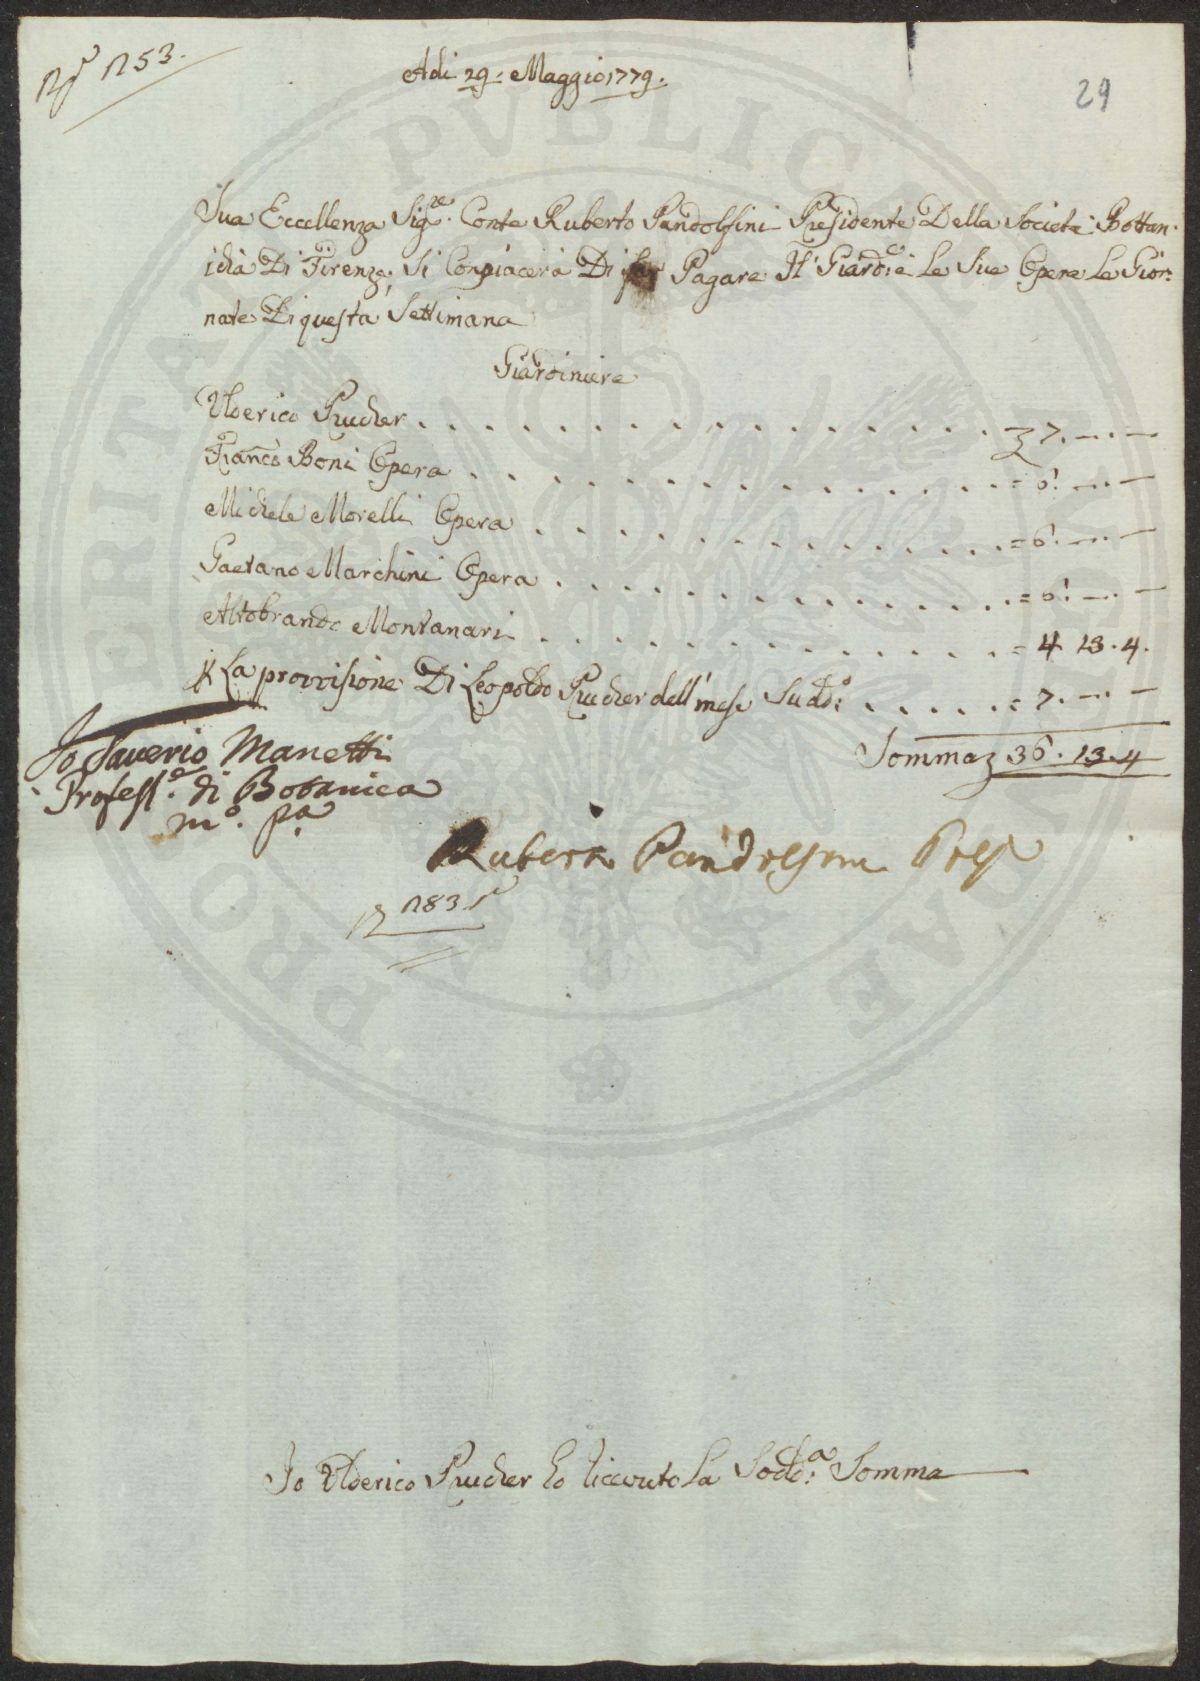 N.º 1253.
Adi 29. Maggio 1779.
29
Sua Eccellenza Sig.re Conte Ruberto Pandolfini Presidente Della Societa Bottan-
icha Di Firenze, Si Conpiacerà Di far Pagare Il Giard.e e Le Sue Opere Le Gior-
nate Di questa Settimana
Giardiniere
Ulderico Prucher . . . . . . . . . . . . . . . . . . 7. —. —
Franc.o Boni Opera . . . . . . . . . . . . . . . . = 6. —. —
Michele Morelli Opera . . . . . . . . . . . . . . = 6. —. —
Gaetano Marchini Opera . . . . . . . . . . . . . = 6. —. —
Altobrando Montanari . . . . . . . . . . . . . . = 4. 13. 4.
La provvisione Di Leopoldo Prucher dell' mese Sudd.o . . . . . = 7. —. —
Somma 36. 13. 4
Io Saverio Manetti
Profess.e di Botanica
m.o p.a
Ruberto Pandolfini Pres
1283
Io Ulderico Prucher ho ricevuto La Sodd.a Somma